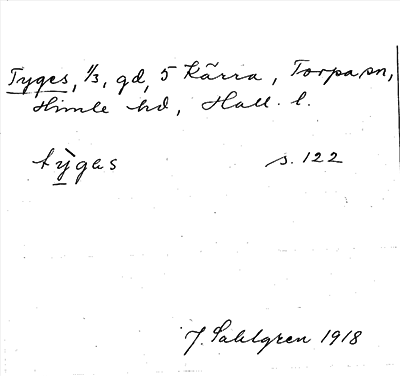 Tyges, 1/3, gd, 5 Kärra, Torpa sn,
Himle hd, Hall. l.
tỳges s. 122
J. Sahlgren 1918